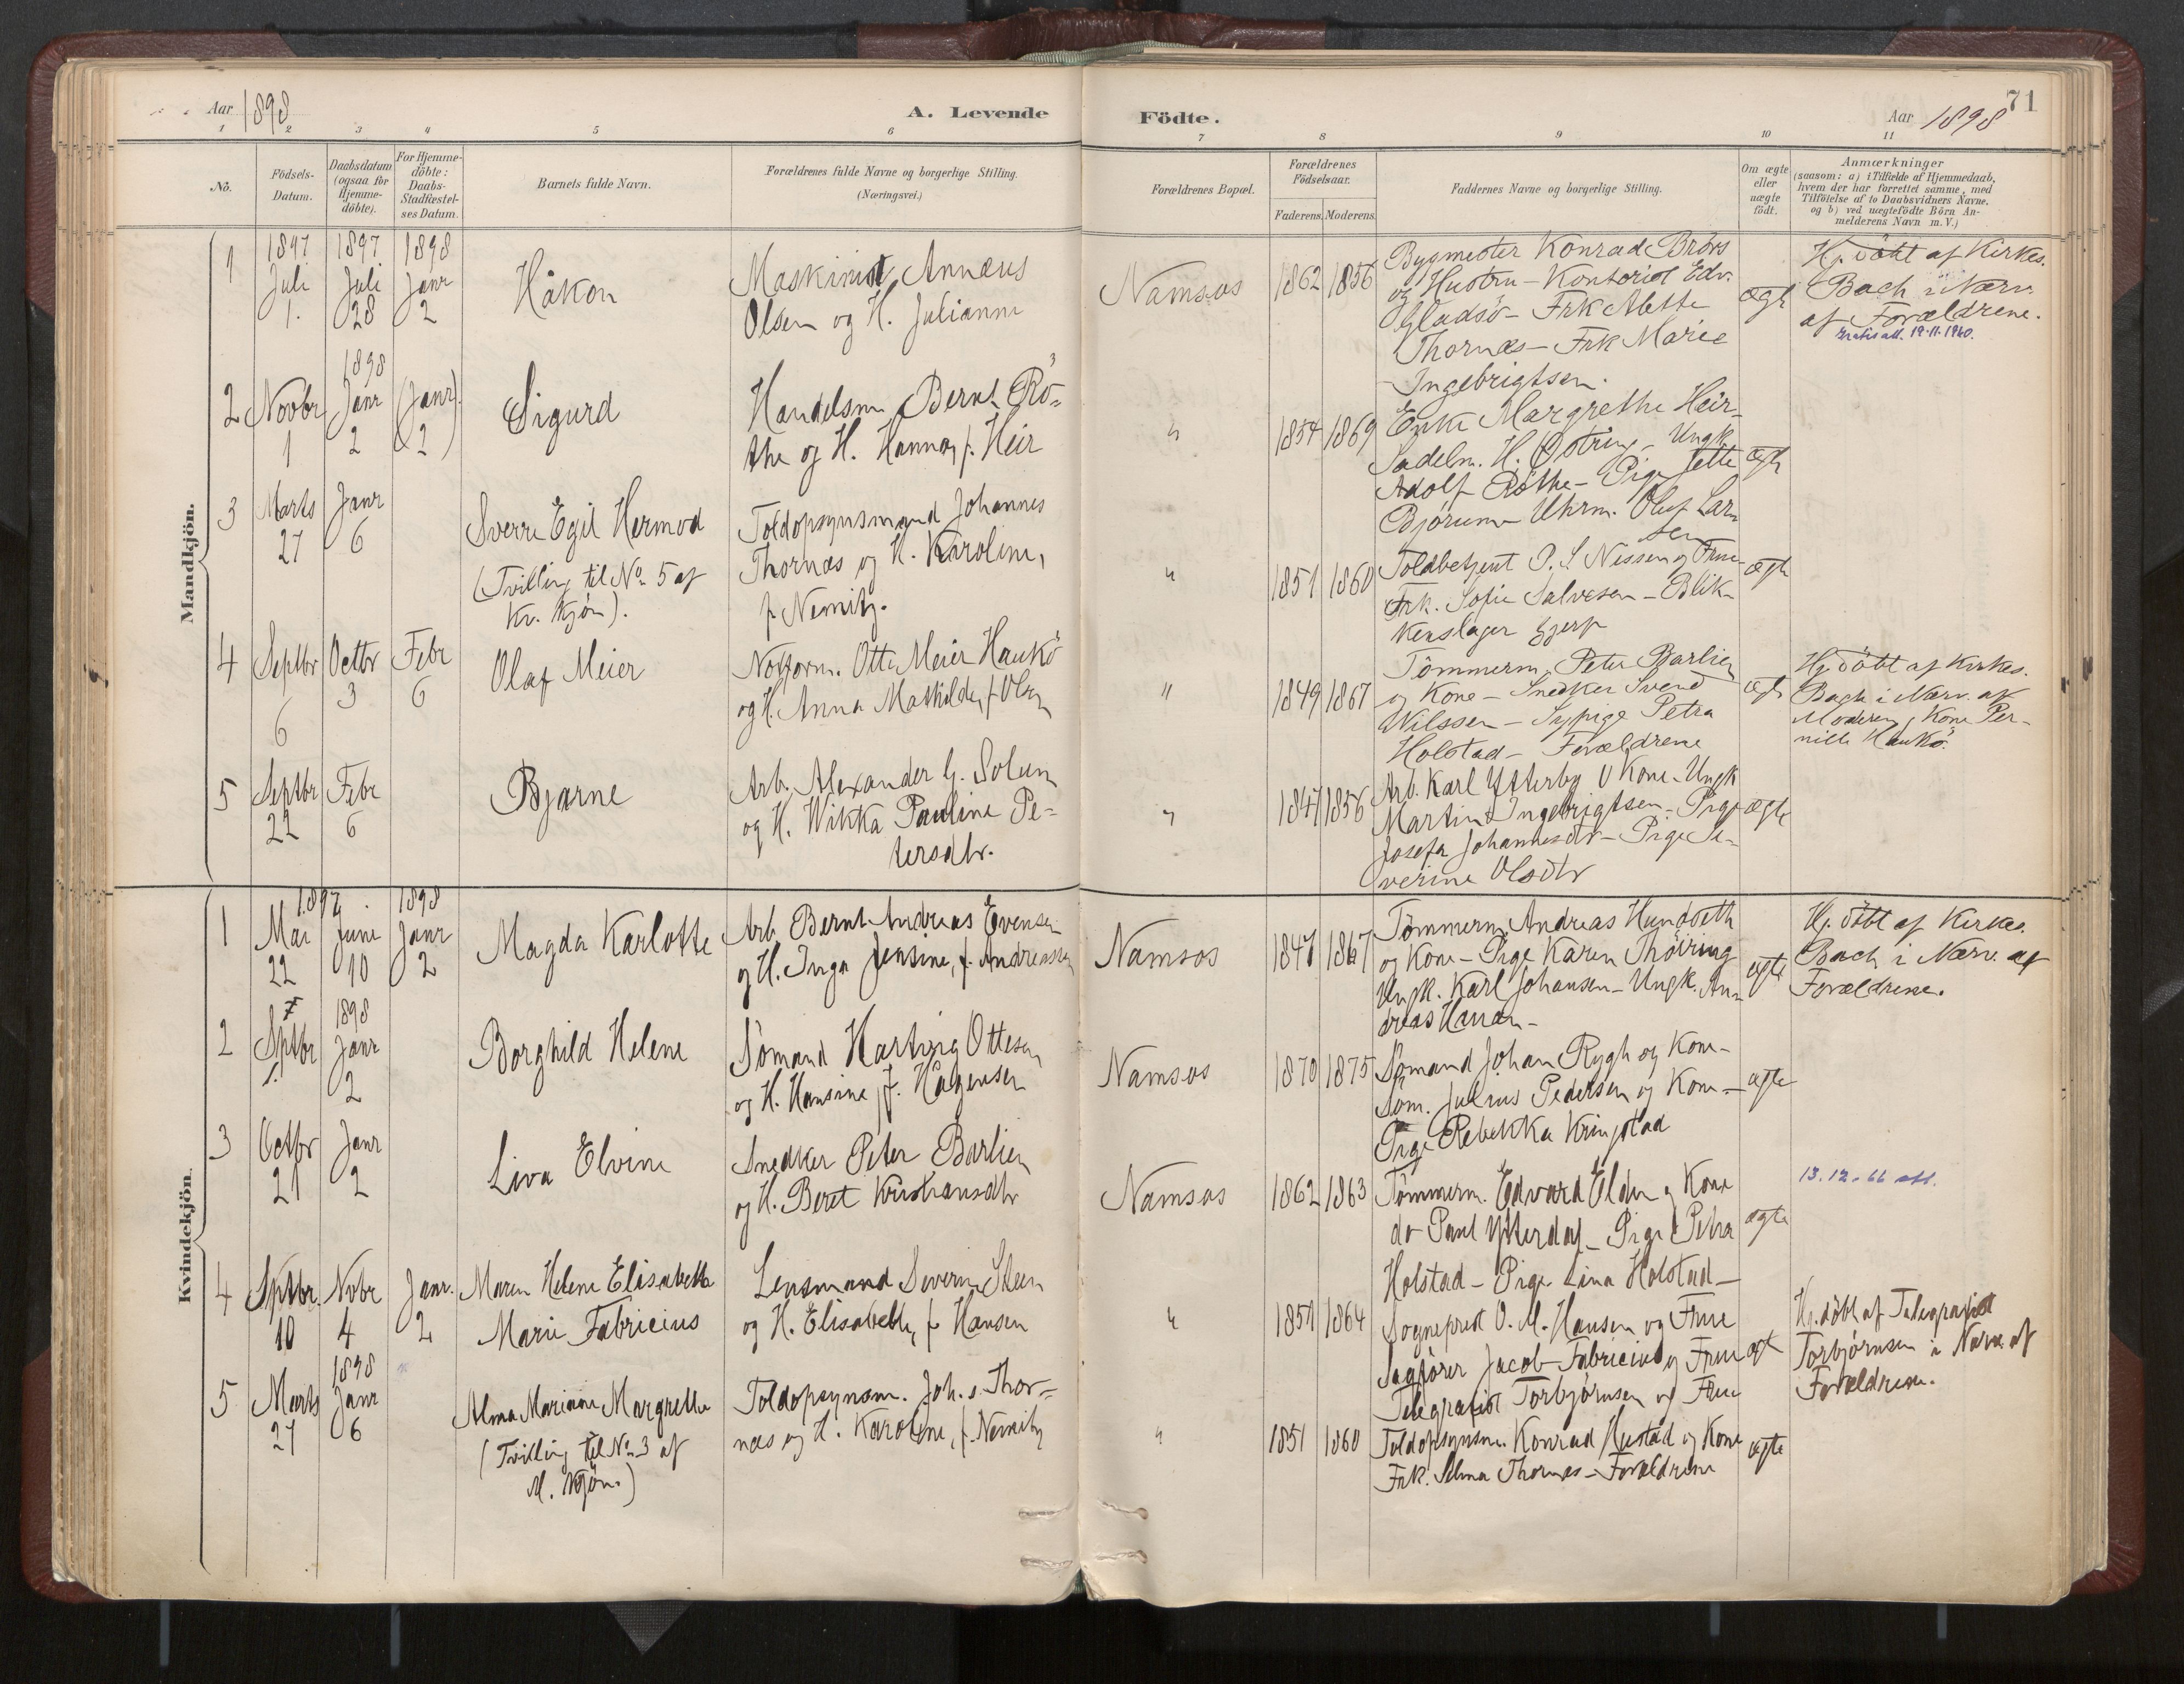 Aar 1898
A. Levende
Födte.
Aar 1898
71
1 2 3 4 5 6 7 8 9 10 11
No.
Födsels-
Datum.
Daabsdatum
(ogsaa for
Hjemme-
döbte).
For Hjemme-
döbte:
Daabs-
Stadfæstel-
ses Datum.
Barnets fulde Navn.
Forældrenes fulde Navne og borgerlige Stilling.
(Næringsvei.)
Forældrenes Bopæl.
Forældrenes
Födselsaar.
Faderens. Moderens.
Faddernes Navne og borgerlige Stilling.
Om ægte
eller
uægte
födt.
Anmærkninger
(saasom: a) i Tilfælde af Hjemmedaab,
hvem der har forrettet samme, med
Tilföielse af to Daabsvidners Navne.
og b) ved uægtefödte Börn An-
melderens Navn m.V.)
Mandkjön.
1
1897
Juli
1.
1897
Juli
28
1898
Janr
2
Håkon
Maskinist Annæus
Olsen og H. Julianne
Namsos
1862 1856
Bygmester Konrad Brörs
og Hustru - Kontorist Edv.
Gladsö - Frk Alette
Thornæs - Frk Marie
Ingebrigtsen.
ægte
Hj. döbt af Kirkes.
Bach i Nærv.
af Forældrene.
att. 19-11-1960.
2
Novbr
1
1898
Janr
2
(Janr).
2
Sigurd
Handelsm. Bernt Rö-
the og H. Hanna, f. Heir
"
1854 1869
Enke Margrethe Heir-
Sadelm. H. Östring - Ungk
Adolf Röthe - Pige Jette
Bjorum - Uhrm. Oluf Lar-
sen
ægte
3
Marts
27
Janr
6
Sverre Egil Hermod
(Tvilling til No 5 af
Kv. Kjön).
Toldopsynsmand Johannes
Thornæs og H. Karoline,
f. Nemitz.
"
1851 1860
Toldbetjent P. S Nissen og Frue
Frk. Sofie Salvesen - Blik-
kenslager Gjerp
ægte
4
Septbr
6
Octbr
3
Febr
6
Olaf Meier
Notform. Otto Meier Haukö
og H. Anna Mathilde, f Olsen
"
1849 1867
Tömmerm. Peter Barlien
og Kone - Snedker Svend
Nilssen - Sypige Petra
Holstad - Forældrene
ægte
Hj. döbt af Kirkes.
Bach i Nærv. af
Moderen, Kone Per-
nille Haukö.
5
Septbr
22
Febr
6
Bjarne
Arb. Alexander G. Solum
og H. Wikka Pauline Pe-
tersdtr.
"
1847 1856
Arb. Karl Ytterby & Kone - Ungk
Martin Ingebrigtsen - Pige
Josefa Johannesdtr - Pige Se-
verine Olsdtr
ægte
Kvindekjön.
1
1897
Mai
22
Juni
10
1898
Janr
2
Magda Karlotte
Arb. Bernt Andreas Evensen
og H. Inga Jensine, f. Andreassen
Namsos
1847 1867
Tömmerm. Andreas Hundseth
og Kone - Pige Karen Thöring
Ungk. Karl Johansen - Ungk. An-
dreas Hanan -
ægte
Hj. döbt af Kirkes.
Bach i Nærv. af
Forældrene.
2
Sptbr
1.
1898
Janr
2
Borghild Helene
Sömand Hartvig Ottesen
og H. Hansine, f. Hågensen
Namsos
1870 1875
Sömand Johan Rygh og Kone -
Söm. Julius Pedersen og Kone -
Pige Rebekka Kringstad
ægte
3
Octbr
21
Janr
2
Liva Elvine
Snedker Peter Barlien
og H. Beret Kristiansdtr
Namsos
1862 1863
Tömmerm. Edvard Elden og Kone
do Paul Ytterdal - Pige Petra
Holstad - Pige Lina Holstad -
ægte
13.12.66 att.
4
Sptbr.
10
Novbr
4
Janr.
2
Maren Helene Elisabeth
Marie Fabricius
Lensmand Severin Steen
og H. Elisabeth, f. Hansen
"
1851 1864
Sogneprest O. M. Hansen og Frue
Sagförer Jacob Fabricius og Frue
Telegrafist Torbjörnsen og Frue
ægte
Hj. döbt af Telegrafist
Torbjörnsen i Nærv. af
Forældrene.
5
Marts
27
1898
Janr
6
Alma Marianne Margrethe
(Tvilling til No 3 af
M. Kjön.)
Toldopsynsm. Joh. s. Thor-
næs og H. Karoline, f. Nemitz
"
1851 1860
Toldopsynsm. Konrad Hustad og Kone
Frk. Alma Thornæs - Forældrene
ægte